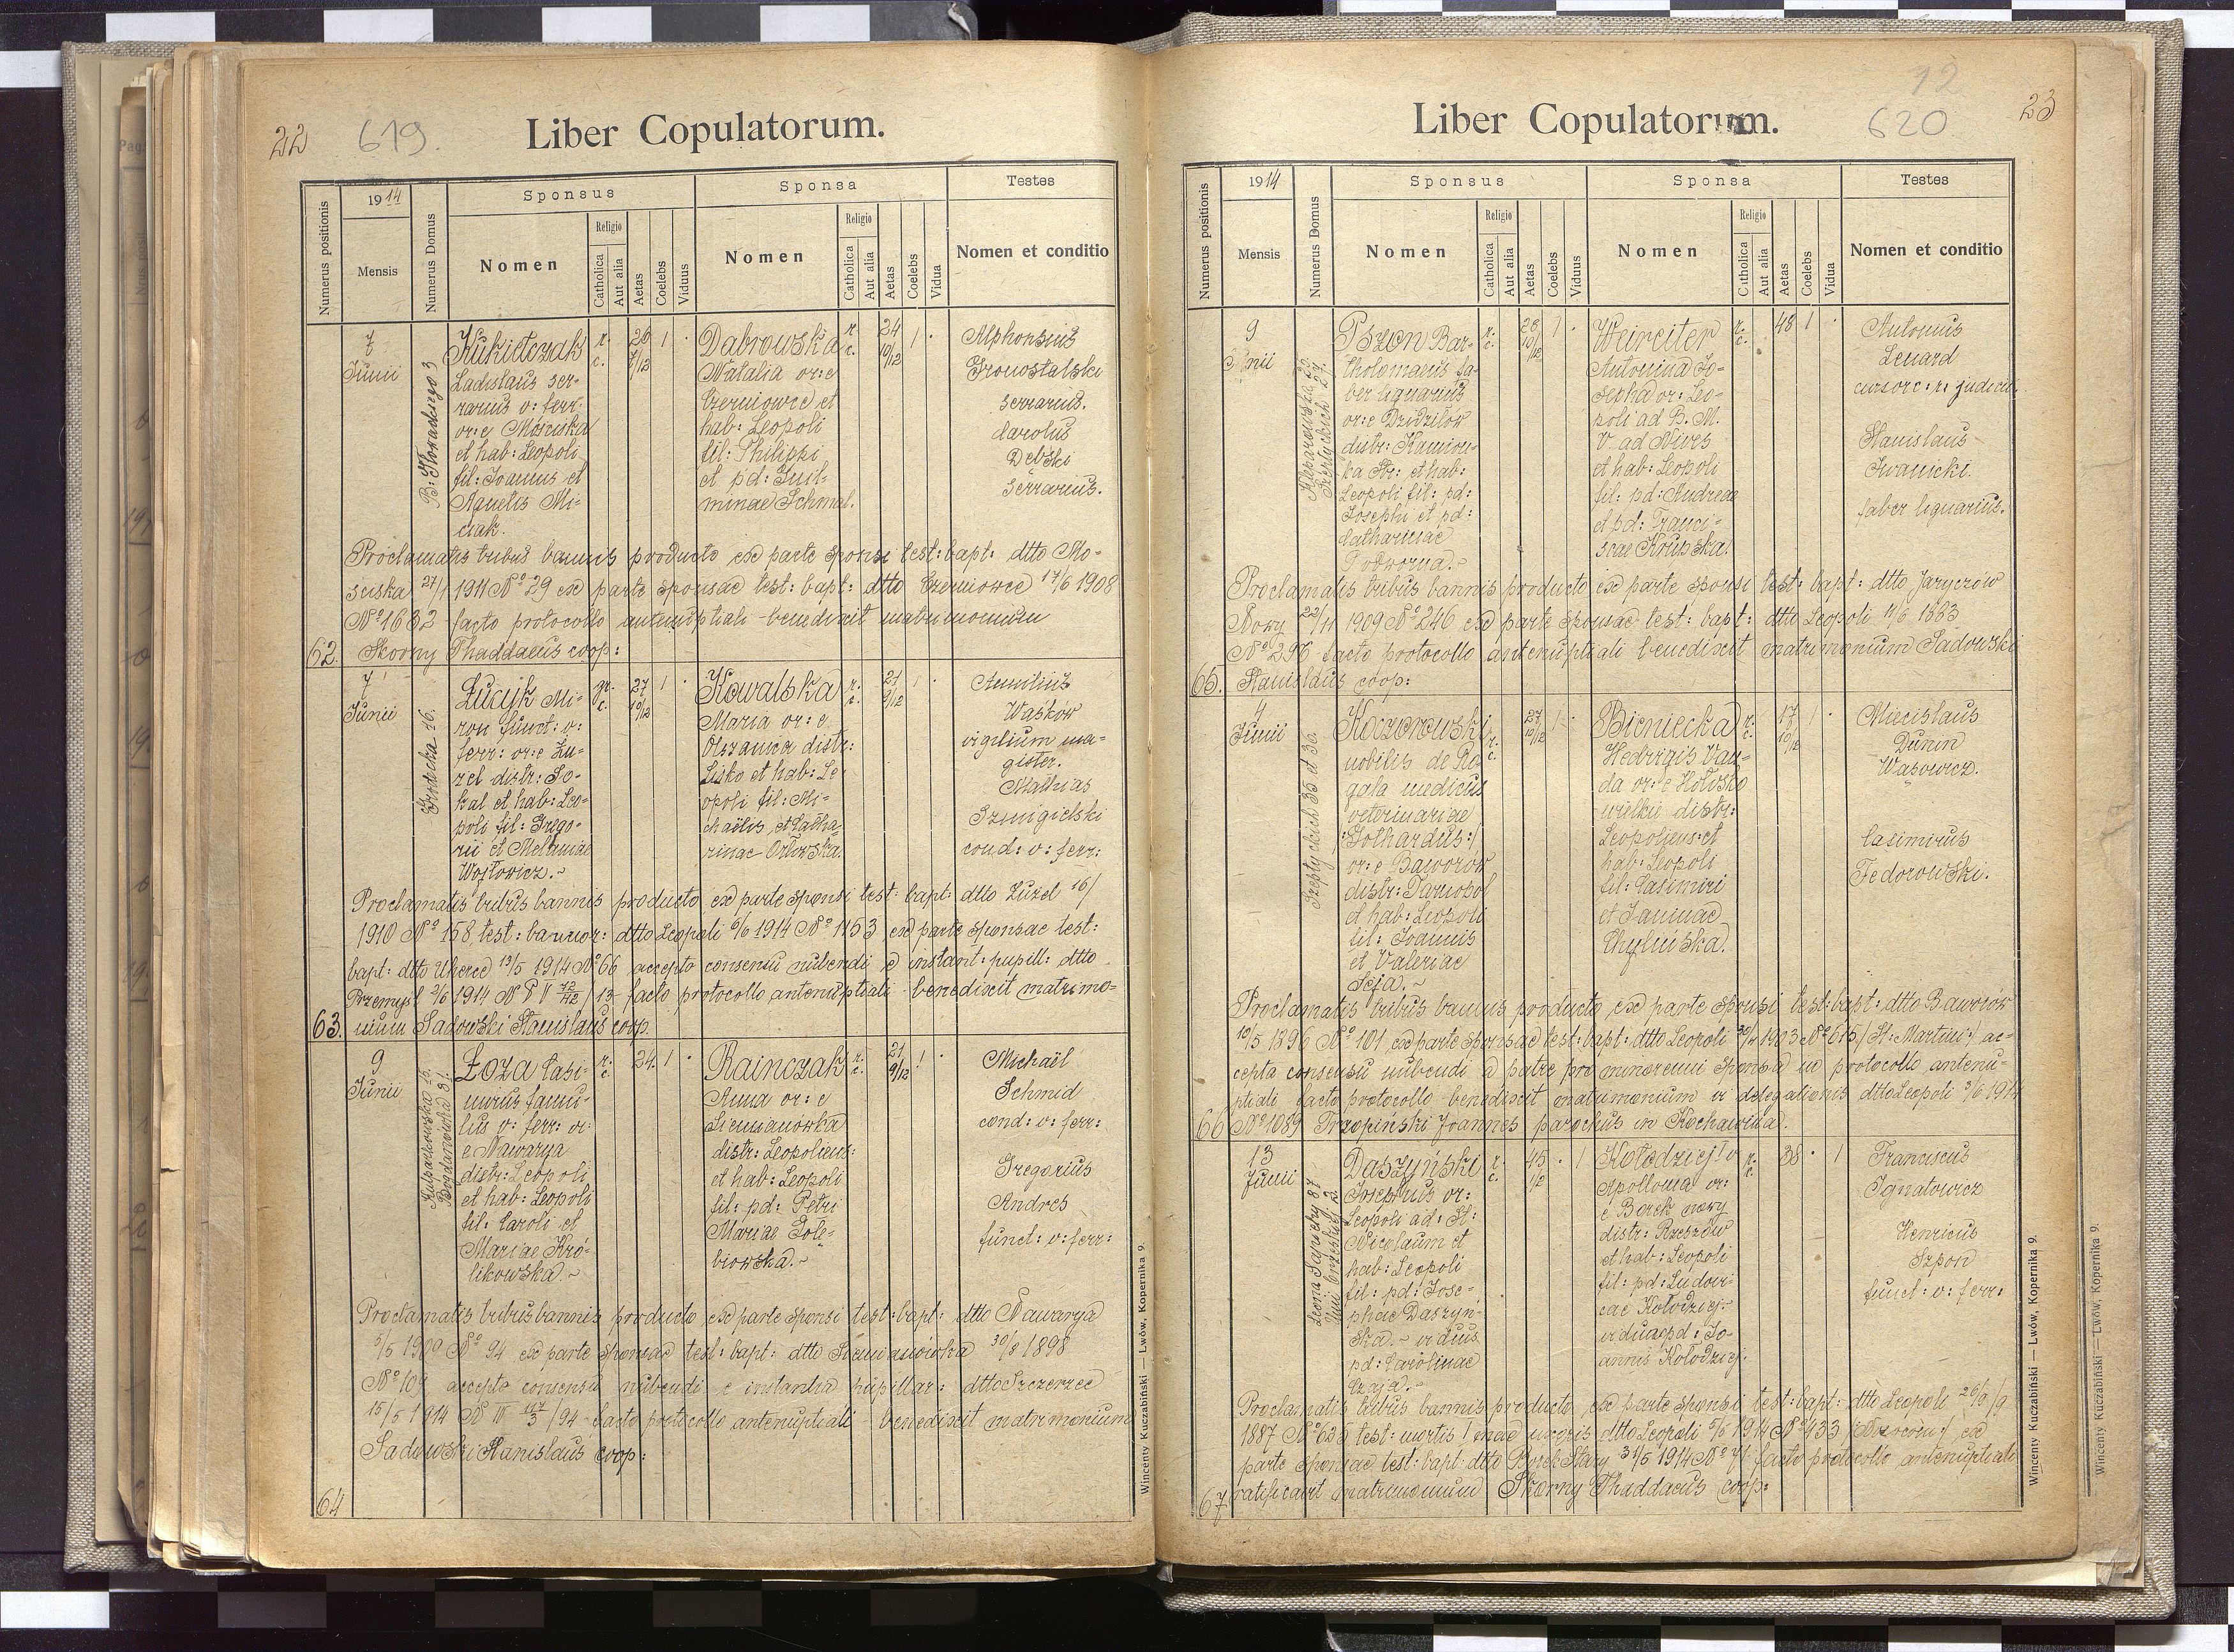 22 619.
Liber Copulatorum.
Numerus positionis
1914
Mensis
Numerus Domus
Sponsus
Nomen
Religio
Catholica
Aut alia
Aetas
Coelebs
Viduus
Sponsa
Nomen
Religio
Catholica
Aut alia
Aetas
Coelebs
Vidua
Testes
Nomen et conditio
7
Junii
Kukietczak
Ladislaus ser-
rarius v: ferr:
or: e Mościska
et hab: Leopoli
fil: Joannis et
Agnetis Mi-
ciak.
r.
c.
26
7/12
1 ·
Dabrowska
Natalia or: e
Czerniowce et
hab: Leopoli
fil: Philippi
et pd: Guil-
minae Schmal.
r.
c.
24
10/12
1 ·
Alphonsus
serrarius.
Carolus
Debski
serrarius.
Proclamatis tribus bannis producto ex parte sponsi test: bapt: dtto Mo-
sciska 27/1 1911 No 29 ex parte sponsae test: bapt: dtto Czerniowce 17/6 1908
No 1632 facto protocollo antenuptiali benedixit matrimonium
62. Skorny Thaddaeus coop:
7
Junii
Grodecka 16.
Łucyk Mi-
ron funct: v:
ferr: or: e Żu-
zel distr: So-
kal et hab: Leo-
poli fil: Grego-
rii et Melaniae
Wojtowicz.~
gr.
c.
27
10/12
1 ·
Kowalska
Maria or: e
Olszanica distr:
Lisko et hab: Le-
opoli fil: Mi-
chaëlis et Catha-
rinae Orłowska.
r.
c.
21
9/12
1 ·
Aemilius
Waśkow
vigilium ma-
gister.
Mathias
Szmigielski
cond: v: ferr:
Proclamatis tribus bannis producto ex parte sponsi test: bapt: dtto Żuzel 16/
1910 No 158, test: bannor: dtto Leopoli 6/6 1914 No 1153 ex parte sponsae test:
bapt: dtto Uherce 13/5 1914 No 66 accepto consensu nubendi e instant: pupill: dtto
Przemysl 2/6 1914 facto protocollo antenuptiali benedixit matrimo-
63. nium Sadowski Stanislaus coop.
9
Junii
Kulparkowska 15.
Bogdanowka 31.
Łoza Casi-
mirus famu-
lus v: ferr: or:
e Nawarya
distr: Leopoli
et hab: Leopoli
fil: Caroli et
Mariae Kró-
likowska.~
r.
c.
24.
1 ·
Rainczak
Anna or: e
Siemianówka
distr: Leopoliens:
et hab: Leopoli
fil: pd: Petri
Mariae Gole-
biowska.~
r.
c.
21
9/12
1 ·
Michaël
Schmid
cond: v: ferr:
Gregorius
Andres
funct: v: ferr:
Proclamatis tribus bannis producto ex parte sponsi test: bapt: dtto Nawarya
5/5 1909 No 94 ex parte sponsae test: bapt: dtto Siemianówka 30/8 1898
No 109 accepto consensu nubendi e instantia pupillar: dtto Szczerzec
15/5 1914 facto protocollo antenuptiali benedixit matrimonium
Sadowski Stanislaus coop:
64
Wincenty Kuczabiński — Lwów, Kopernika 9.
12
620
23
Liber Copulatorum.
Numerus positionis
1914
Mensis
Numerus Domus
Sponsus
Nomen
Religio
Catholica
Aut alia
Aetas
Coelebs
Viduus
Sponsa
Nomen
Religio
Catholica
Aut alia
Aetas
Coelebs
Vidua
Testes
Nomen et conditio
9
Junii
Kleparowska
Pszon Bar-
tholomaeus fa-
ber lignarius
or: e Dzidziłow
distr: Kamion-
ka Str: et hab:
Leopoli fil: pd:
Josephi et pd:
Catharinae
Podworna.~
r.
c.
26
10/12
1 ·
Weireiter
Antonina Jo-
sepha or: Leo-
poli ad B. M.
V. ad Nives
et hab: Leopoli
fil: pd: Andreae
et pd: Franci-
scae Krupska.
r.
c.
48
1 ·
Antonius
Lenard
cursor c: r: judicii.
Stanislaus
Iwanicki
faber lignarius.
Proclamatis tribus bannis producto ex parte sponsi test: bapt: dtto Jaryczow
Nowy 22/11 1909 No 246 ex parte sponsae test: bapt: dtto Leopoli 11/6 1883
No 296 facto protocollo antenuptiali benedixit matrimonium Sadowski
65. Stanislaus coop:
4
Junii
Szeptyckich 35 et 30.
Kaczorowski
nobilis de Ro-
gala medicus
veterinariae
/:Gothardus:/
or: e Baworow
distr: Tarnopol
et hab: Leopoli
fil: Joannis
et Valeriae
Seja.~
r.
c.
27
10/12
1 ·
Bieniecka
Hedvigis Van-
da or: e Hołosko
wielkie distr:
Leopoliens: et
hab: Leopoli
fil: Casimiri
et Janinae
Chylińska.
r.
c.
17
10/12
1 ·
Miecislaus
Dunin
Wąsowicz.
Casimirus
Fedorowski.
Proclamatis tribus bannis producto ex parte sponsi test: bapt: dtto Baworow
19/5 1896 No 101 ex parte sponsae test: bapt: dtto Leopoli 1903 No 615 /St: Martini/ ac-
cepta consensu nubendi a patre pro minorenni sponsa in protocollo antenu-
ptiali facto protocollo benedixit matrimonium vi delegationis dtto Leopoli 3/6 1914
66 No 1089 Trzopiński Joannes parochus in Kochawina.
13
Junii
Leona Sapiehy 87
Unii brzeskiej 2.
Daszyński
Josephus or:
Leopoli ad: St:
Nicolaum et
hab: Leopoli
fil: pd: Jose-
phae Daszyn-
ska.~ viduus
pd: Carolinae
Czaja.~
r.
c.
45
1/12
· 1
Kołodziej 1o v:
Apollonia or:
e Borek nowy
distr: Rzeszów
et hab: Leopoli
fil: pd: Ludovi-
cae Kołodziej
vidua pd: Jo-
annis Kołodziej.
r.
c.
38
· 1
Franciscus
Ignatowicz
Henricus
Szpon
funct: v: ferr:
Proclamatis tribus bannis producto ex parte sponsi test: bapt: dtto Leopoli 26/9
1887 No 635 test: mortis 1mae uxoris dtto Leopoli 5/6 1914 No 433 ex
parte sponsae test: bapt: dtto Borek Stary 31/5 1914 No 71 facto protocollo antenuptiali
67 ratificavit matrimonium Skorny Thaddaeus coop:
Wincenty Kuczabiński — Lwów, Kopernika 9.
Wincenty Kuczabiński — Lwów, Kopernika 9.